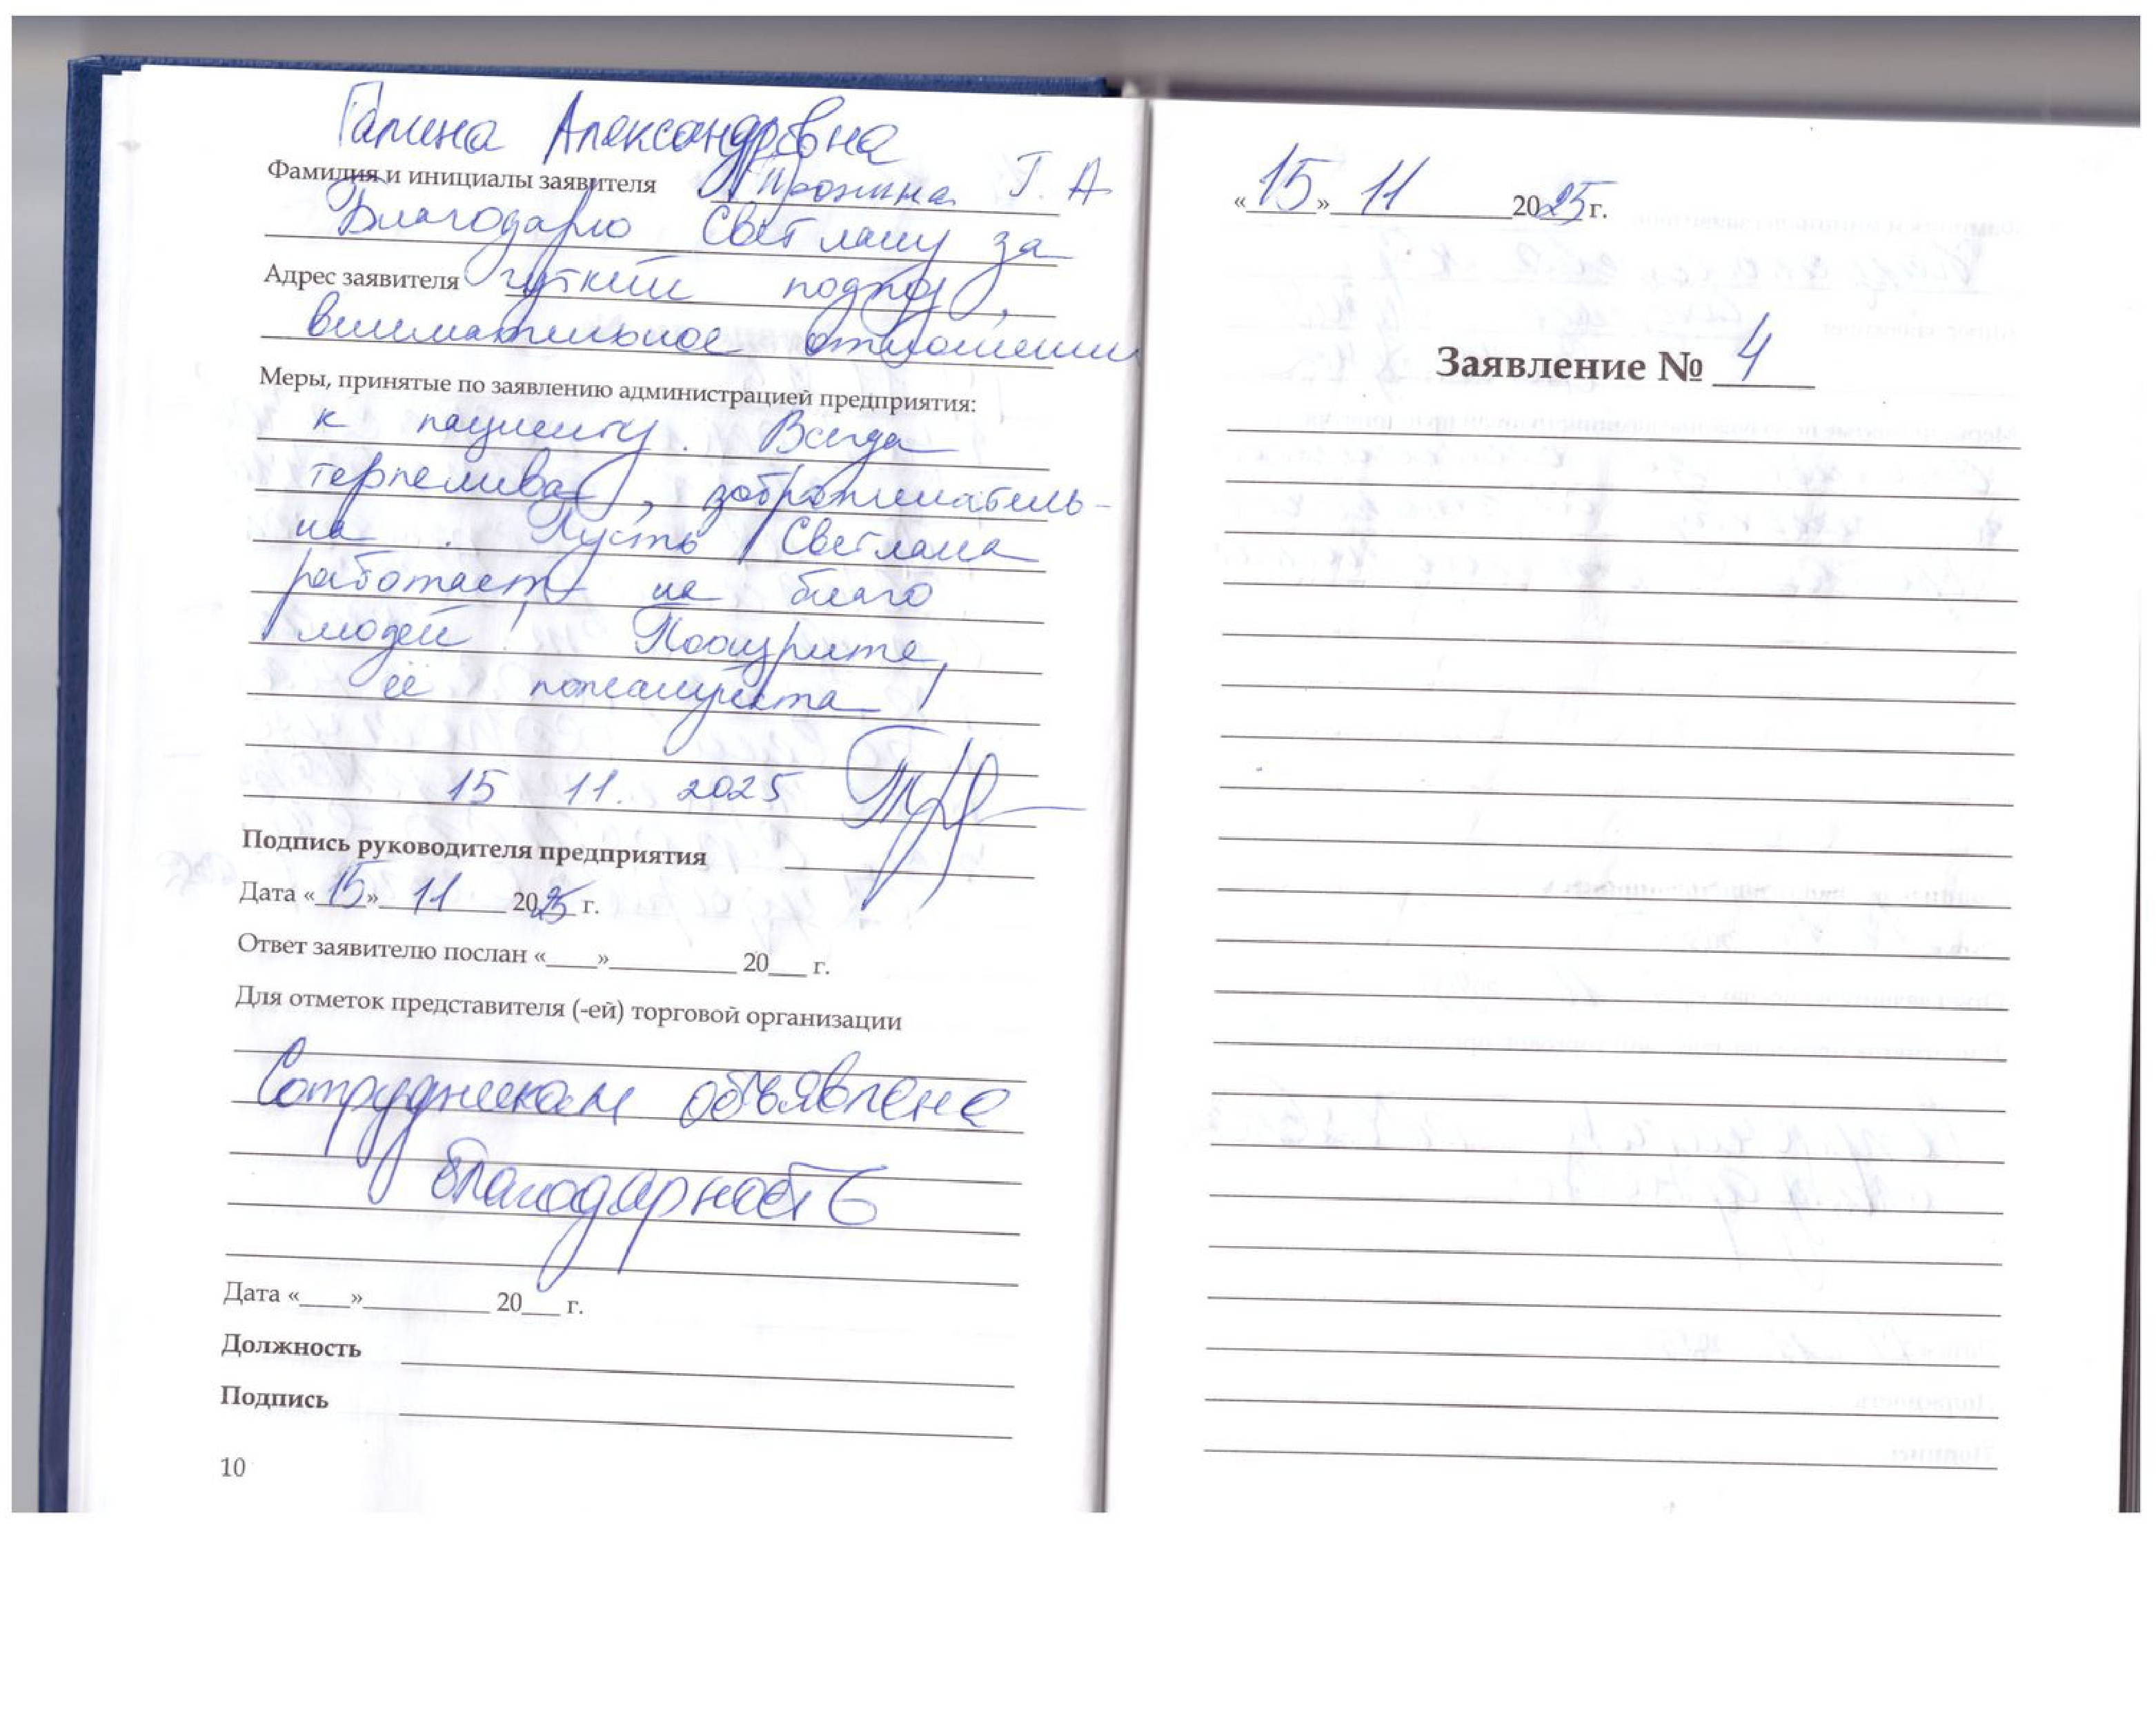 Галина Александровна
Фамилия и инициалы заявителя Пронина Г. А
Благодарю Светлану за
Адрес заявителя чуткий подход,
внимательное отношение
Меры, принятые по заявлению администрацией предприятия:
к пациенту. Всегда
терпелива, доброжелатель-
на. Пусть Светлана
работает на благо
людей! Поощрите
её пожалуйста!
15 11. 2025
Подпись руководителя предприятия
Дата «15» 11 2025 г.
Ответ заявителю послан «____»__________ 20___ г.
Для отметок представителя (-ей) торговой организации
Сотрудникам объявлена
благодарность
Дата «____»__________ 20___ г.
Должность
Подпись
10
«15» 11 2025 г.
Заявление № 4